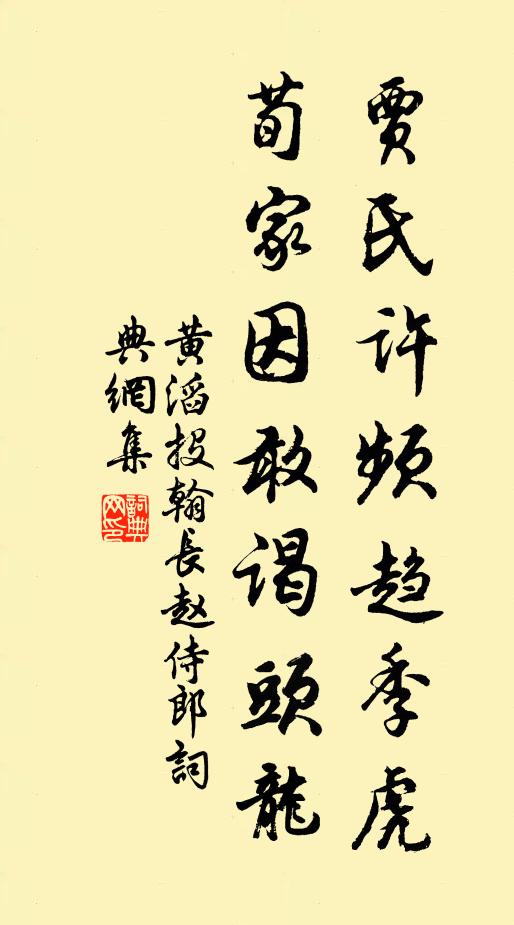 賈氏許頻趨季虎
荀家因敢謁頭龍
黄滔投翰長赵侍郎詞
典網集
詞典網印